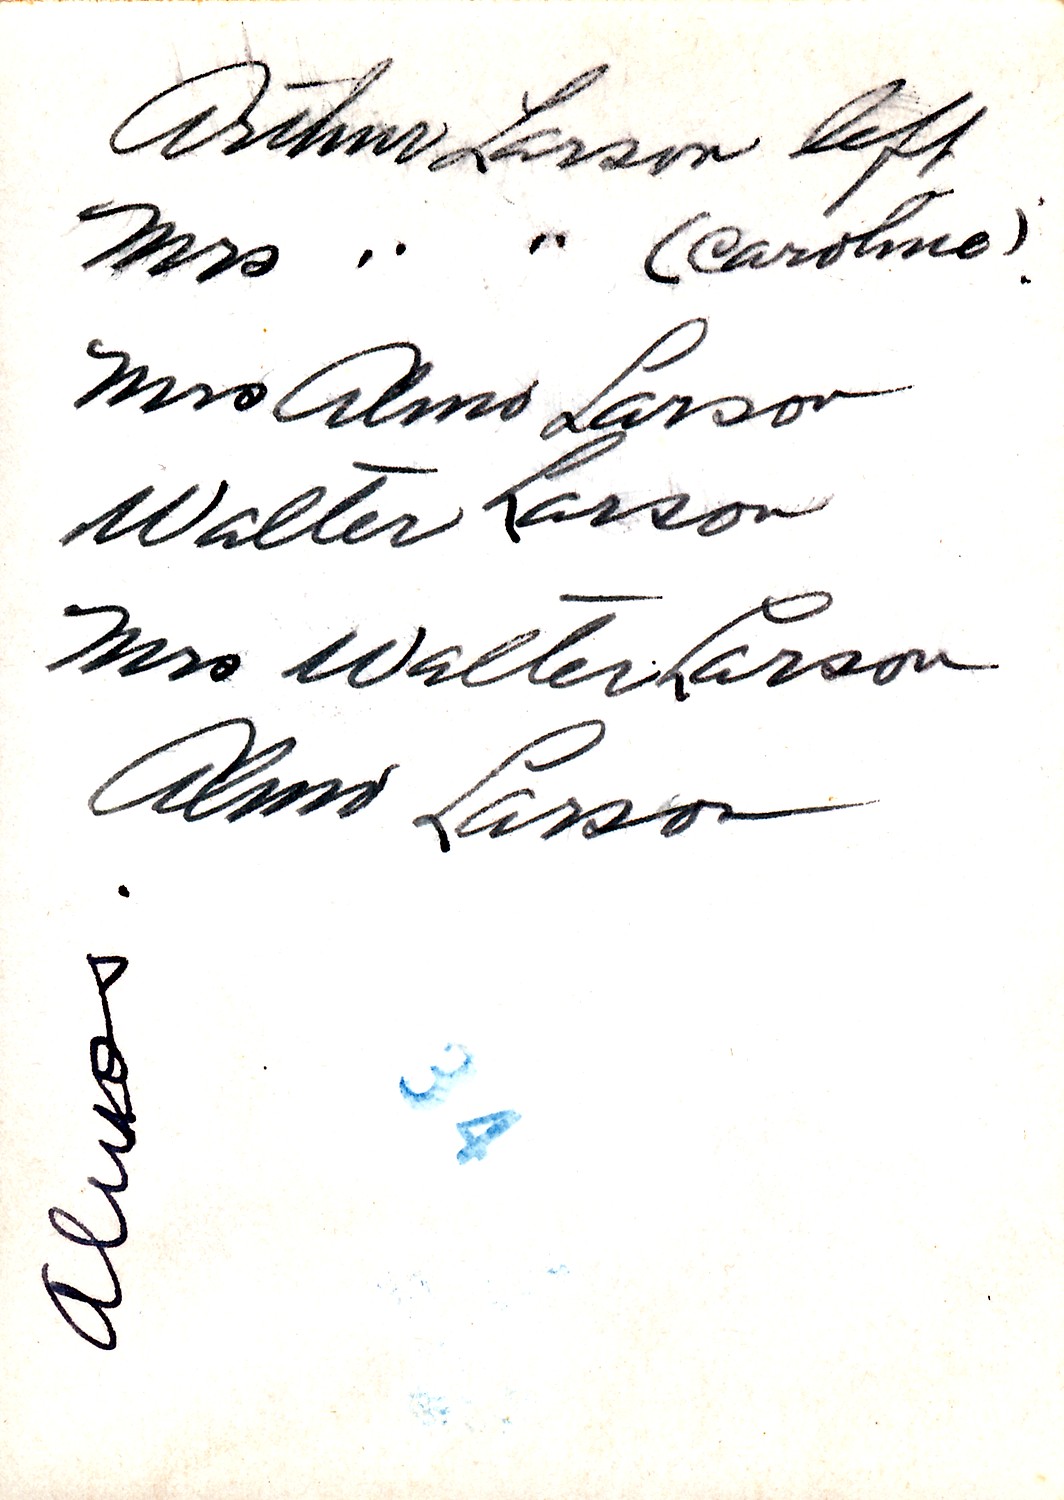 Arthur Larson left
Mrs " " (Caroline).
Mrs Almo Larson
Walter Larson
Mrs Walter Larson
Almo Larson
Almos.
34